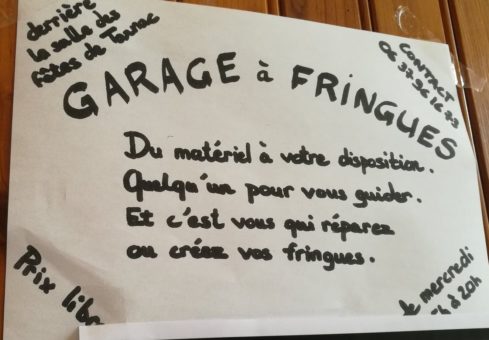 derrière
la salle des
fêtes de Tarnac
CONTACT
06 37 96 16 79
GARAGE à FRINGUES
Du matériel à votre disposition.
Quelqu'un pour vous guider.
Et c'est vous qui réparez
ou créez vos fringues.
Prix libre
le mercredi
à 20h